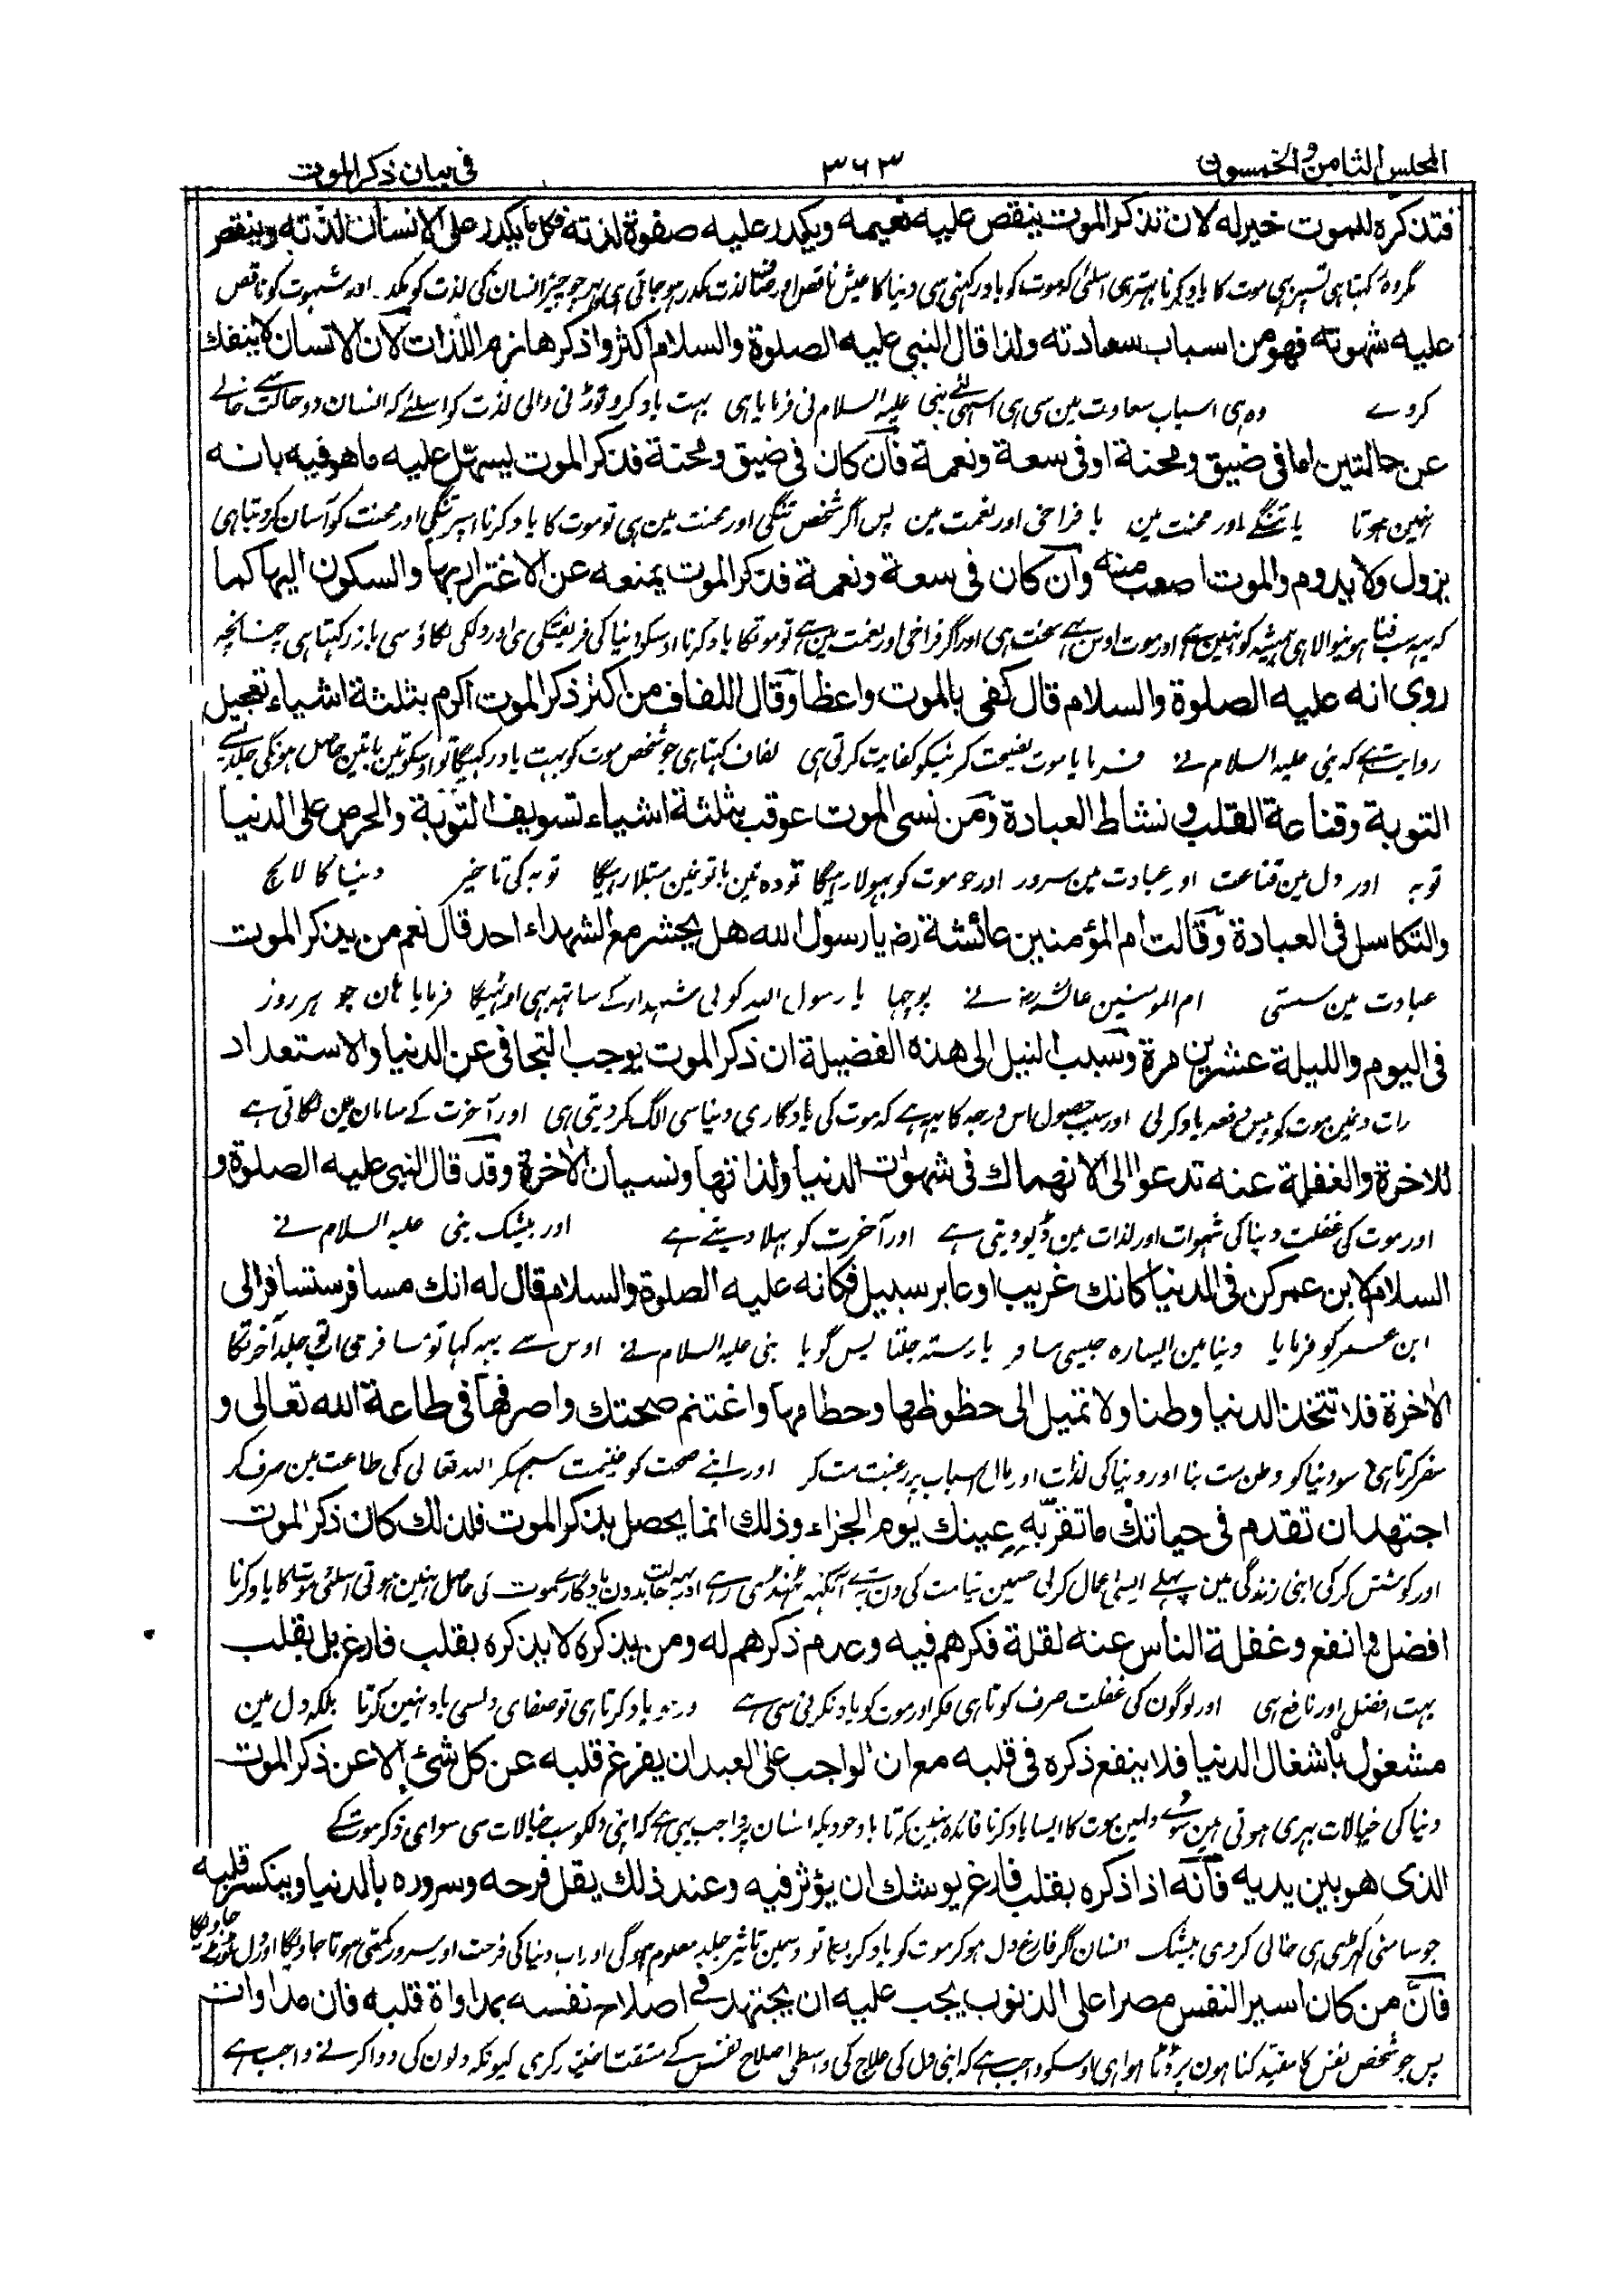 المجلس الثامن والخمسون ٣٦٣ في بيان ذكر الموت
فتذكره للموت خير له لان تذكر الموت ينقص عليه نعيمه ويكدر عليه صفوة لذته فكل ما يكدر على الانسان لذته وينقص
مگروہ کہتا ہی تسپر بھی موت کا یاد کرنا بہتر ہی اسلئی کہ موت کو یاد رکہنی ہی دنیا کا عیش ناقص اور لذت مکدر ہو جاتی ہی پہر جو چیز انسان کی لذت کو مکدر اور شہوت کو ناقص
عليه شهوته فهو من اسباب سعادته ولذا قال النبي عليه الصلوة والسلام اكثروا ذكر هازم اللذات لان الانسان لا ينفك
کردے وہ ہی اسباب سعادت مین سی ہی اسی لئے نبی علیہ السلام نی فرمایا ہی بہت یاد کرو توڑنی والی لذت کو اسلئے کہ انسان دو حالت سے خالے
عن حالتين اما في ضيق ومحنة او في سعة ونعمة فان كان في ضيق ومحنة فذكر الموت يسهل عليه ما هو فيه بانه
نہین ہوتا یا تنگے اور محنت مین یا فراخی اور نعمت مین پس اگر شخص تنگی اور محنت مین ہی تو موت کا یاد کرنا اسپر تنگی اور محنت کو آسان کر دیتا ہی
يزول ولا يدوم والموت اصعب منه وان كان في سعة ونعمة فذكر الموت يمنعه عن الاغترار بها والسكون اليها كما
کہ یہہ سب فنا ہونیوالا ہی ہمیشہ کو نہین ہے اور موت اوس سے سخت ہی اور اگر فراخی اور نعمت مین ہے تو موتکا یاد کرنا اوسکو دنیا کی فریفتگی سی اور دلکی لگاؤ سی باز رکہتا ہی چنانچہ
روي انه عليه الصلوة والسلام قال كفى بالموت واعظا وقال اللفاف من اكثر ذكر الموت اكرم بثلثة اشياء تعجيل
روایت ہے کہ نبی علیہ السلام نے فرمایا موت نصیحت کرنیکو کفایت کرتی ہی لفاف کہتا ہی جو شخص موت کو بہت یاد رکہیگا تو اوسکو تین باتین حاصل ہونگی جلدی سے
التوبة وقناعة القلب ونشاط العبادة ومن نسي الموت عوقب بثلثة اشياء تسويف التوبة والحرص على الدنيا
توبہ اور دل مین قناعت اور عبادت مین سرور اور جو موت کو بہولا رہیگا تو وہ تین باتونمین مبتلا رہیگا توبہ کی تاخیر دنیا کا لالچ
والتكاسل في العبادة وقالت ام المؤمنين عائشة رض يا رسول الله هل يحشر مع الشهداء احد قال نعم من يذكر الموت
عبادت مین سستی ام المومنین عائشہ رض نے پوچہا یا رسول اللہ کوئی شہداء کے ساتہہ بہی اوٹہیگا فرمایا ہان جو ہر روز
في اليوم والليلة عشرين مرة وسبب النيل الى هذه الفضيلة ان ذكر الموت يوجب التجافي عن الدنيا والاستعداد
رات دنمین موت کو بیس دفعہ یاد کرلی اور سبب حصول اس درجہ کا یہہ ہے کہ موت کی یادگاری دنیا سی الگ کر دیتی ہی اور آخرت کے سامان مین لگاتی ہے
للاخرة والغفلة عنه تدعو الى الانهماك في شهوات الدنيا ولذاتها ونسيان الاخرة وقد قال النبي عليه الصلوة و
اور موت کی غفلت دنیا کی شہوات اور لذات مین ڈبو دیتی ہے اور آخرت کو بہلا دیتے ہے اور بیشک نبی علیہ السلام نے
السلام لابن عمر كن في الدنيا كانك غريب او عابر سبيل فكانه عليه الصلوة والسلام قال له انك مسافر ستسافر الى
ابن عمر کو فرمایا دنیا مین ایسا رہ جیسی مسافر یا رستہ چلتا پس گویا نبی علیہ السلام نے اوس سے یہہ کہا تو مسافر ہی جلد آخرتکا
الاخرة فلا تتخذ الدنيا وطنا ولا تميل الى حظوظها وحطامها واغتنم صحتك واصرفها في طاعة الله تعالى و
سفر کرتا ہی سو دنیا کو وطن مت بنا اور دنیا کی لذات اور مال اسباب پر رغبت مت کر اور اپنے صحت کو غنیمت سمجہکر اللہ تعالی کی طاعت مین صرف کر
اجتهد ان تقدم في حياتك ما تقر به عينك يوم الجزاء وذلك انما يحصل بذكر الموت فلذلك كان ذكر الموت
اور کوشش کر کی اپنی زندگی مین پہلے ایسی اعمال کرلی جسمین قیامت کی دن آنکہہ ٹہنڈی رہے اور یہہ بات بدون یادگاری موت کی حاصل نہین ہوتی اسلئی موت کا یاد کرنا
افضل وانفع وغفلة الناس عنه لقلة فكرهم فيه وعدم ذكرهم له ومن يذكره لا يذكره بقلب فارغ بل بقلب
بہت افضل اور نافع ہی اور لوگون کی غفلت صرف کوتاہی فکر اور موت کو یاد نکرنی سی ہے ورنہ یاد کرتا ہی تو صفای دلسی یاد نہین کرتا بلکہ دل مین
مشغول باشغال الدنيا فلا ينفع ذكره في قلبه مع ان الواجب على العبد ان يفرغ قلبه عن كل شئ الا عن ذكر الموت
دنیا کی خیالات بہری ہوتی ہین سو دلمین موت کا ایسا یاد کرنا فائدہ نہین کرتا باوجودیکہ انسان پر واجب یہی ہے کہ اپنی دلکو سب خیالات سی سوای ذکر موت کے
الذي هو بين يديه فانه اذا ذكره بقلب فارغ يوشك ان يؤثر فيه وعند ذلك يقل فرحه وسروره بالدنيا وينكسر قلبه
جو سامنی کہڑی ہی خالی کر دی بیشک انسان اگر فارغ دل ہو کر موت کو یاد کریگا تو دلمین تاثیر جلد معلوم ہوگی اور اب دنیا کی فرحت اور سرور کمتی ہوتا جاویگا اور دل ٹوٹ جاویگا
فان من كان اسير النفس مصرا على الذنوب يجب عليه ان يجتهد في اصلاح نفسه بمداواة قلبه فان مداوات
پس جو شخص نفس کا مقید گناہون پر ڈٹا ہوا ہی اوسکو واجب ہے کہ اپنی دل کی علاج کی واسطی اصلاح نفس کے مشقت اختیار کری کیونکہ دلون کی دوا کرنے واجب ہے